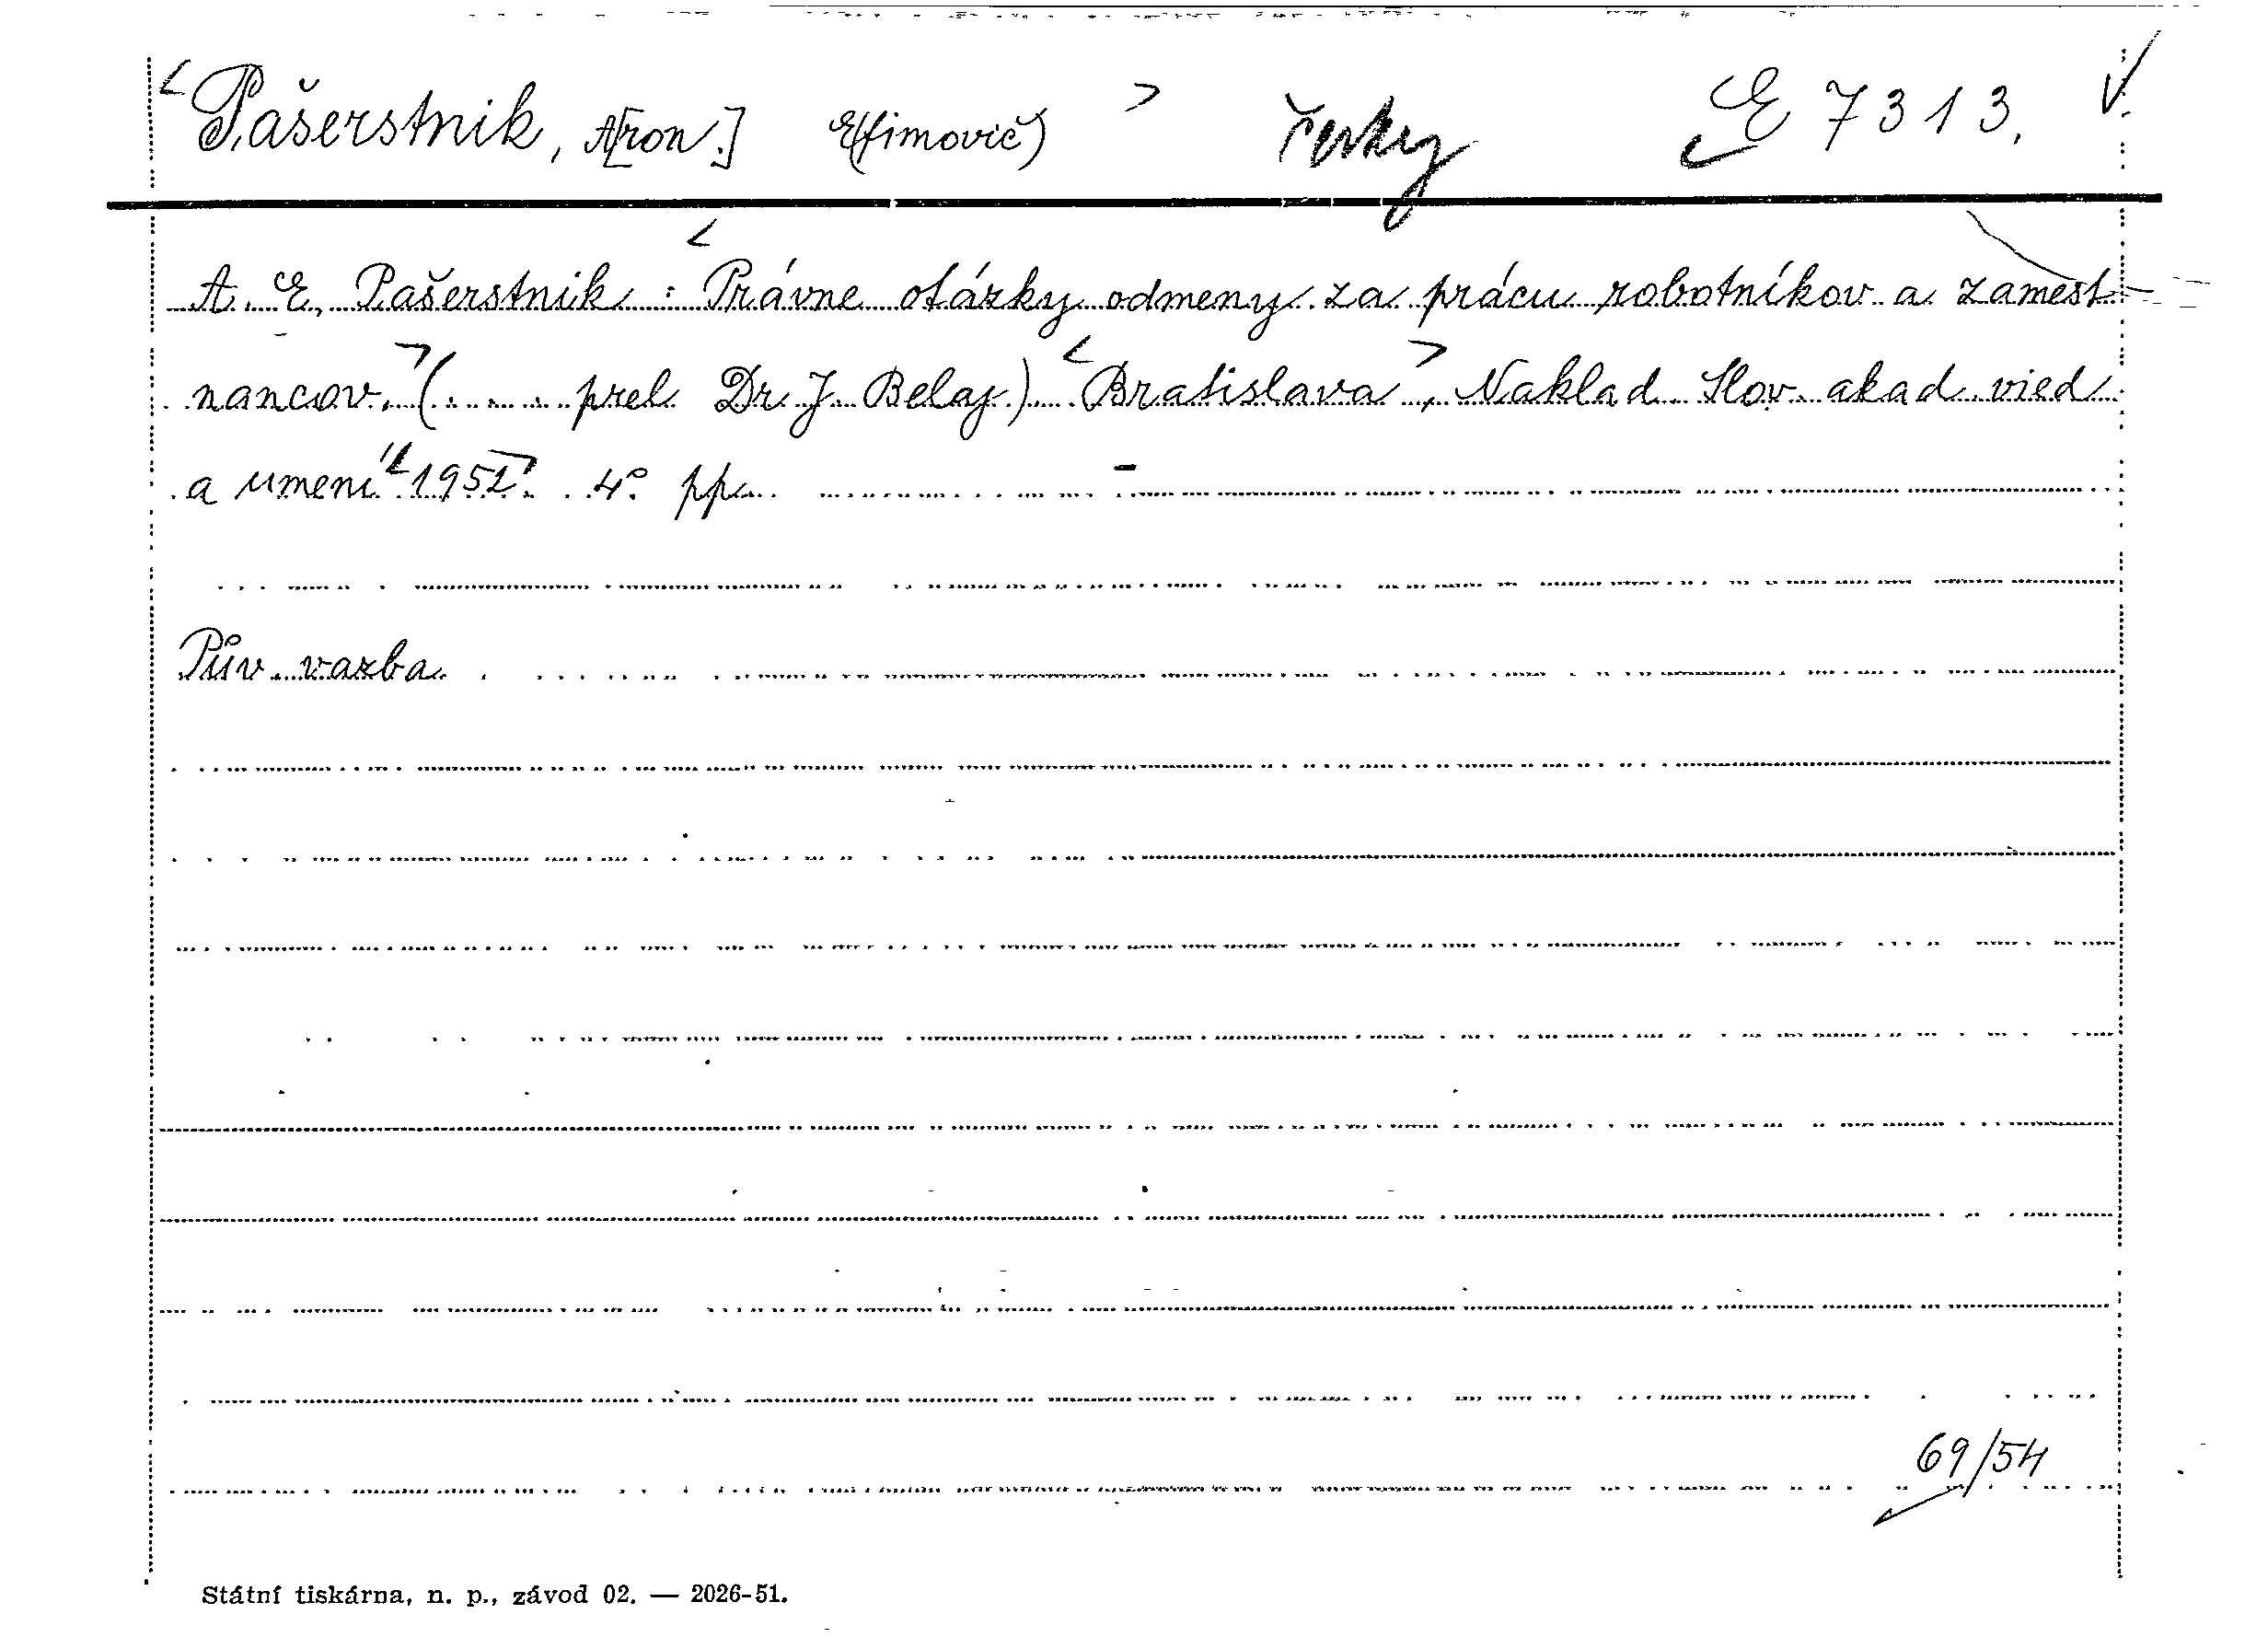 <Pašerstnik, A[ron.] E(fimovič) > česky E 7313. V.
A. E. Pašerstnik : <Právne otázky odmeny za prácu robotníkov a zamest
nancov.> (..... prel. Dr. J. Belaj). <Bratislava>, Naklad. Slov. akad. vied
a umení <1952>. 4°. pp. –
Pův. vazba.
69/54
Státní tiskárna, n. p., závod 02. — 2026-51.